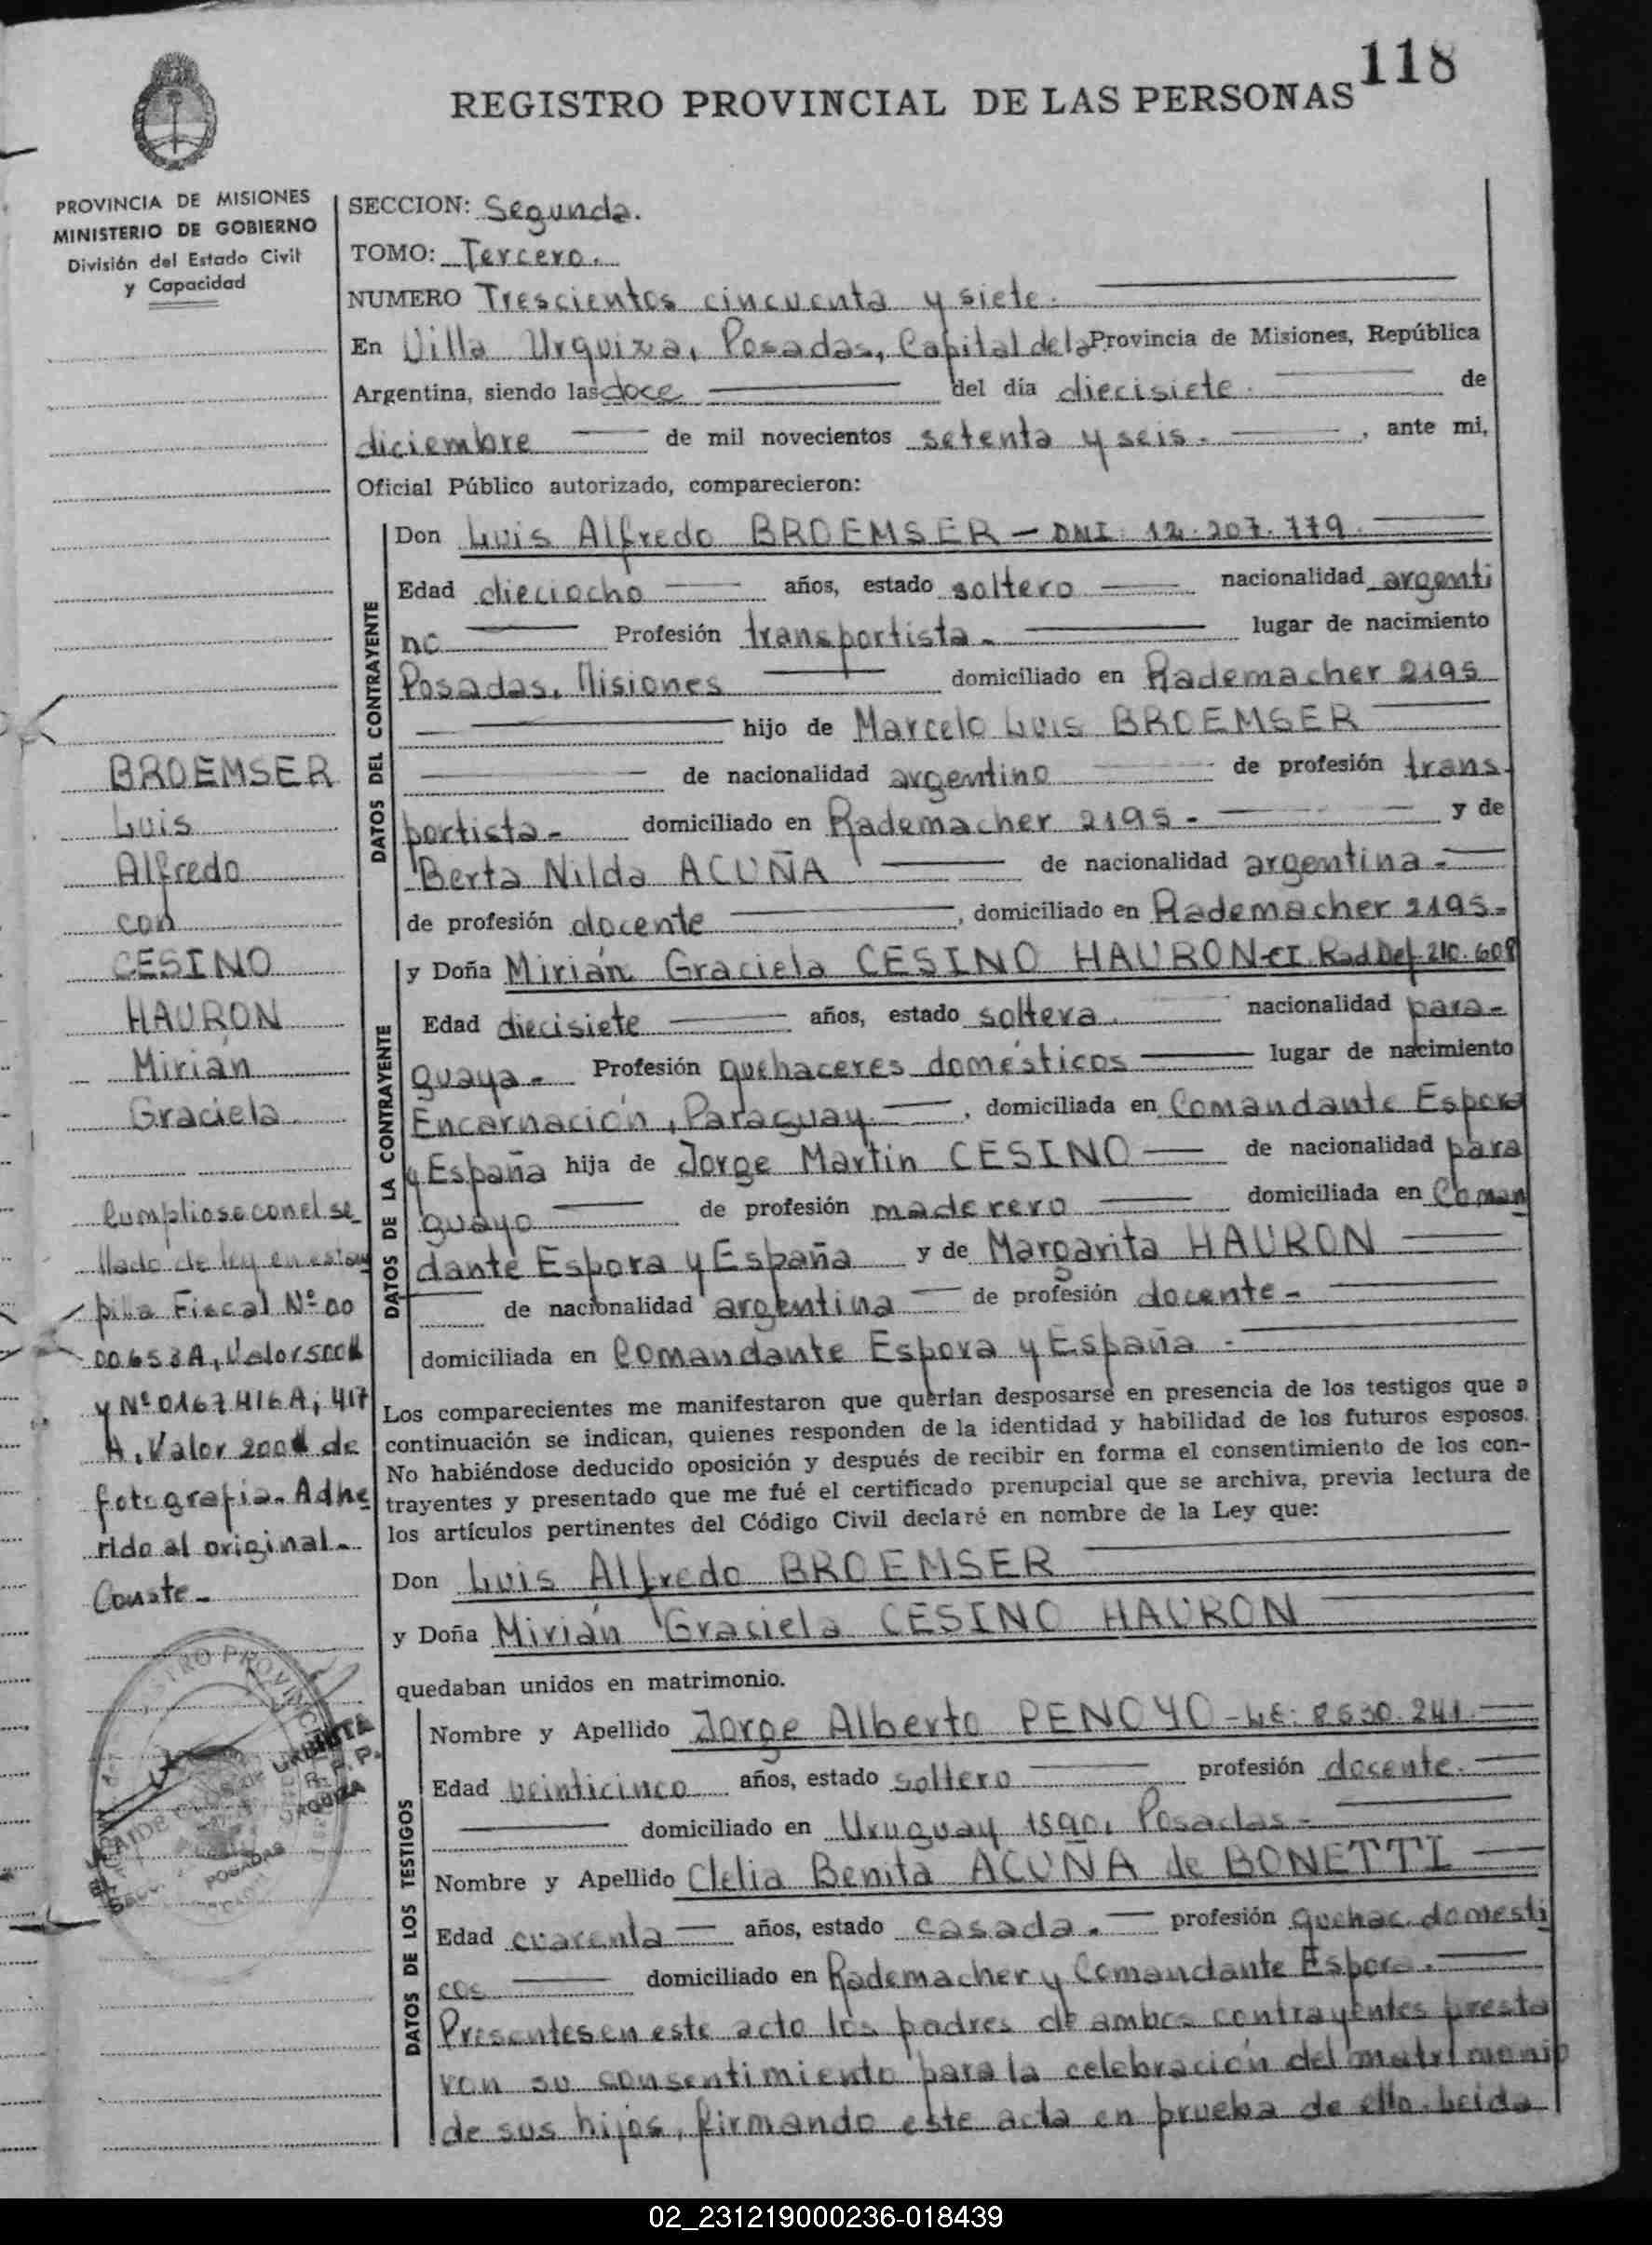 118
REGISTRO PROVINCIAL DE LAS PERSONAS
PROVINCIA DE MISIONES
MINISTERIO DE GOBIERNO
División del Estado Civil
y Capacidad
SECCION: Segunda.
TOMO: Tercero.
NUMERO Trescientos cincuenta y siete.
En Villa Urquiza, Posadas, Capital de la Provincia de Misiones, República
Argentina, siendo las doce del día diecisiete. de
diciembre de mil novecientos setenta y seis. , ante mi,
Oficial Público autorizado, comparecieron:
DATOS DEL CONTRAYENTE
Don Luis Alfredo BROEMSER - DNI: 12.207.779.
Edad dieciocho años, estado soltero nacionalidad argenti
no Profesión transportista - lugar de nacimiento
Posadas, Misiones domiciliado en Rademacher 2195
hijo de Marcelo Luis BROEMSER
de nacionalidad argentino de profesión trans.
portista - domiciliado en Rademacher 2195 - y de
Berta Nilda ACUÑA de nacionalidad argentina -
de profesión docente , domiciliado en Rademacher 2195 -
DATOS DE LA CONTRAYENTE
y Doña Mirián Graciela CESINO HAURON - CI. Rad Def 210.608
Edad diecisiete años, estado soltera. nacionalidad para-
guaya - Profesión quehaceres domésticos lugar de nacimiento
Encarnación, Paraguay. , domiciliada en Comandante Espora
y España hija de Jorge Martin CESINO de nacionalidad para
guayo de profesión maderero domiciliada en Coman
dante Espora y España y de Margarita HAURON
de nacionalidad argentina de profesión docente -
domiciliada en Comandante Espora y España -
Los comparecientes me manifestaron que querían desposarse en presencia de los testigos que a
continuación se indican, quienes responden de la identidad y habilidad de los futuros esposos.
No habiéndose deducido oposición y después de recibir en forma el consentimiento de los con-
trayentes y presentado que me fué el certificado prenupcial que se archiva, previa lectura de
los artículos pertinentes del Código Civil declaré en nombre de la Ley que:
Don Luis Alfredo BROEMSER
y Doña Mirián Graciela CESINO HAURON
quedaban unidos en matrimonio.
DATOS DE LOS TESTIGOS
Nombre y Apellido Jorge Alberto PENOYO - LE: 8530.241.
Edad veinticinco años, estado soltero profesión docente.
domiciliado en Uruguay 1590, Posadas -
Nombre y Apellido Clelia Benita ACUÑA de BONETTI
Edad cuarenta años, estado casada. profesión quehac. domesti
cos domiciliado en Rademacher y Comandante Espora.
Presentes en este acto los padres de ambos contrayentes presta
ron su consentimiento para la celebración del matrimonio
de sus hijos, firmando este acta en prueba de ello. Leida
BROEMSER
Luis
Alfredo
con
CESINO
HAURON
Mirián
Graciela.
Cumpliose con el se
llado de ley en estam
pilla Fiscal Nº 00
00653A, Valor 500
y Nº 0167416A, 417
A, Valor 200 de
fotografia. Adhe
rido al original -
Conste -
POSADAS
URQUIZA
02_231219000236-018439